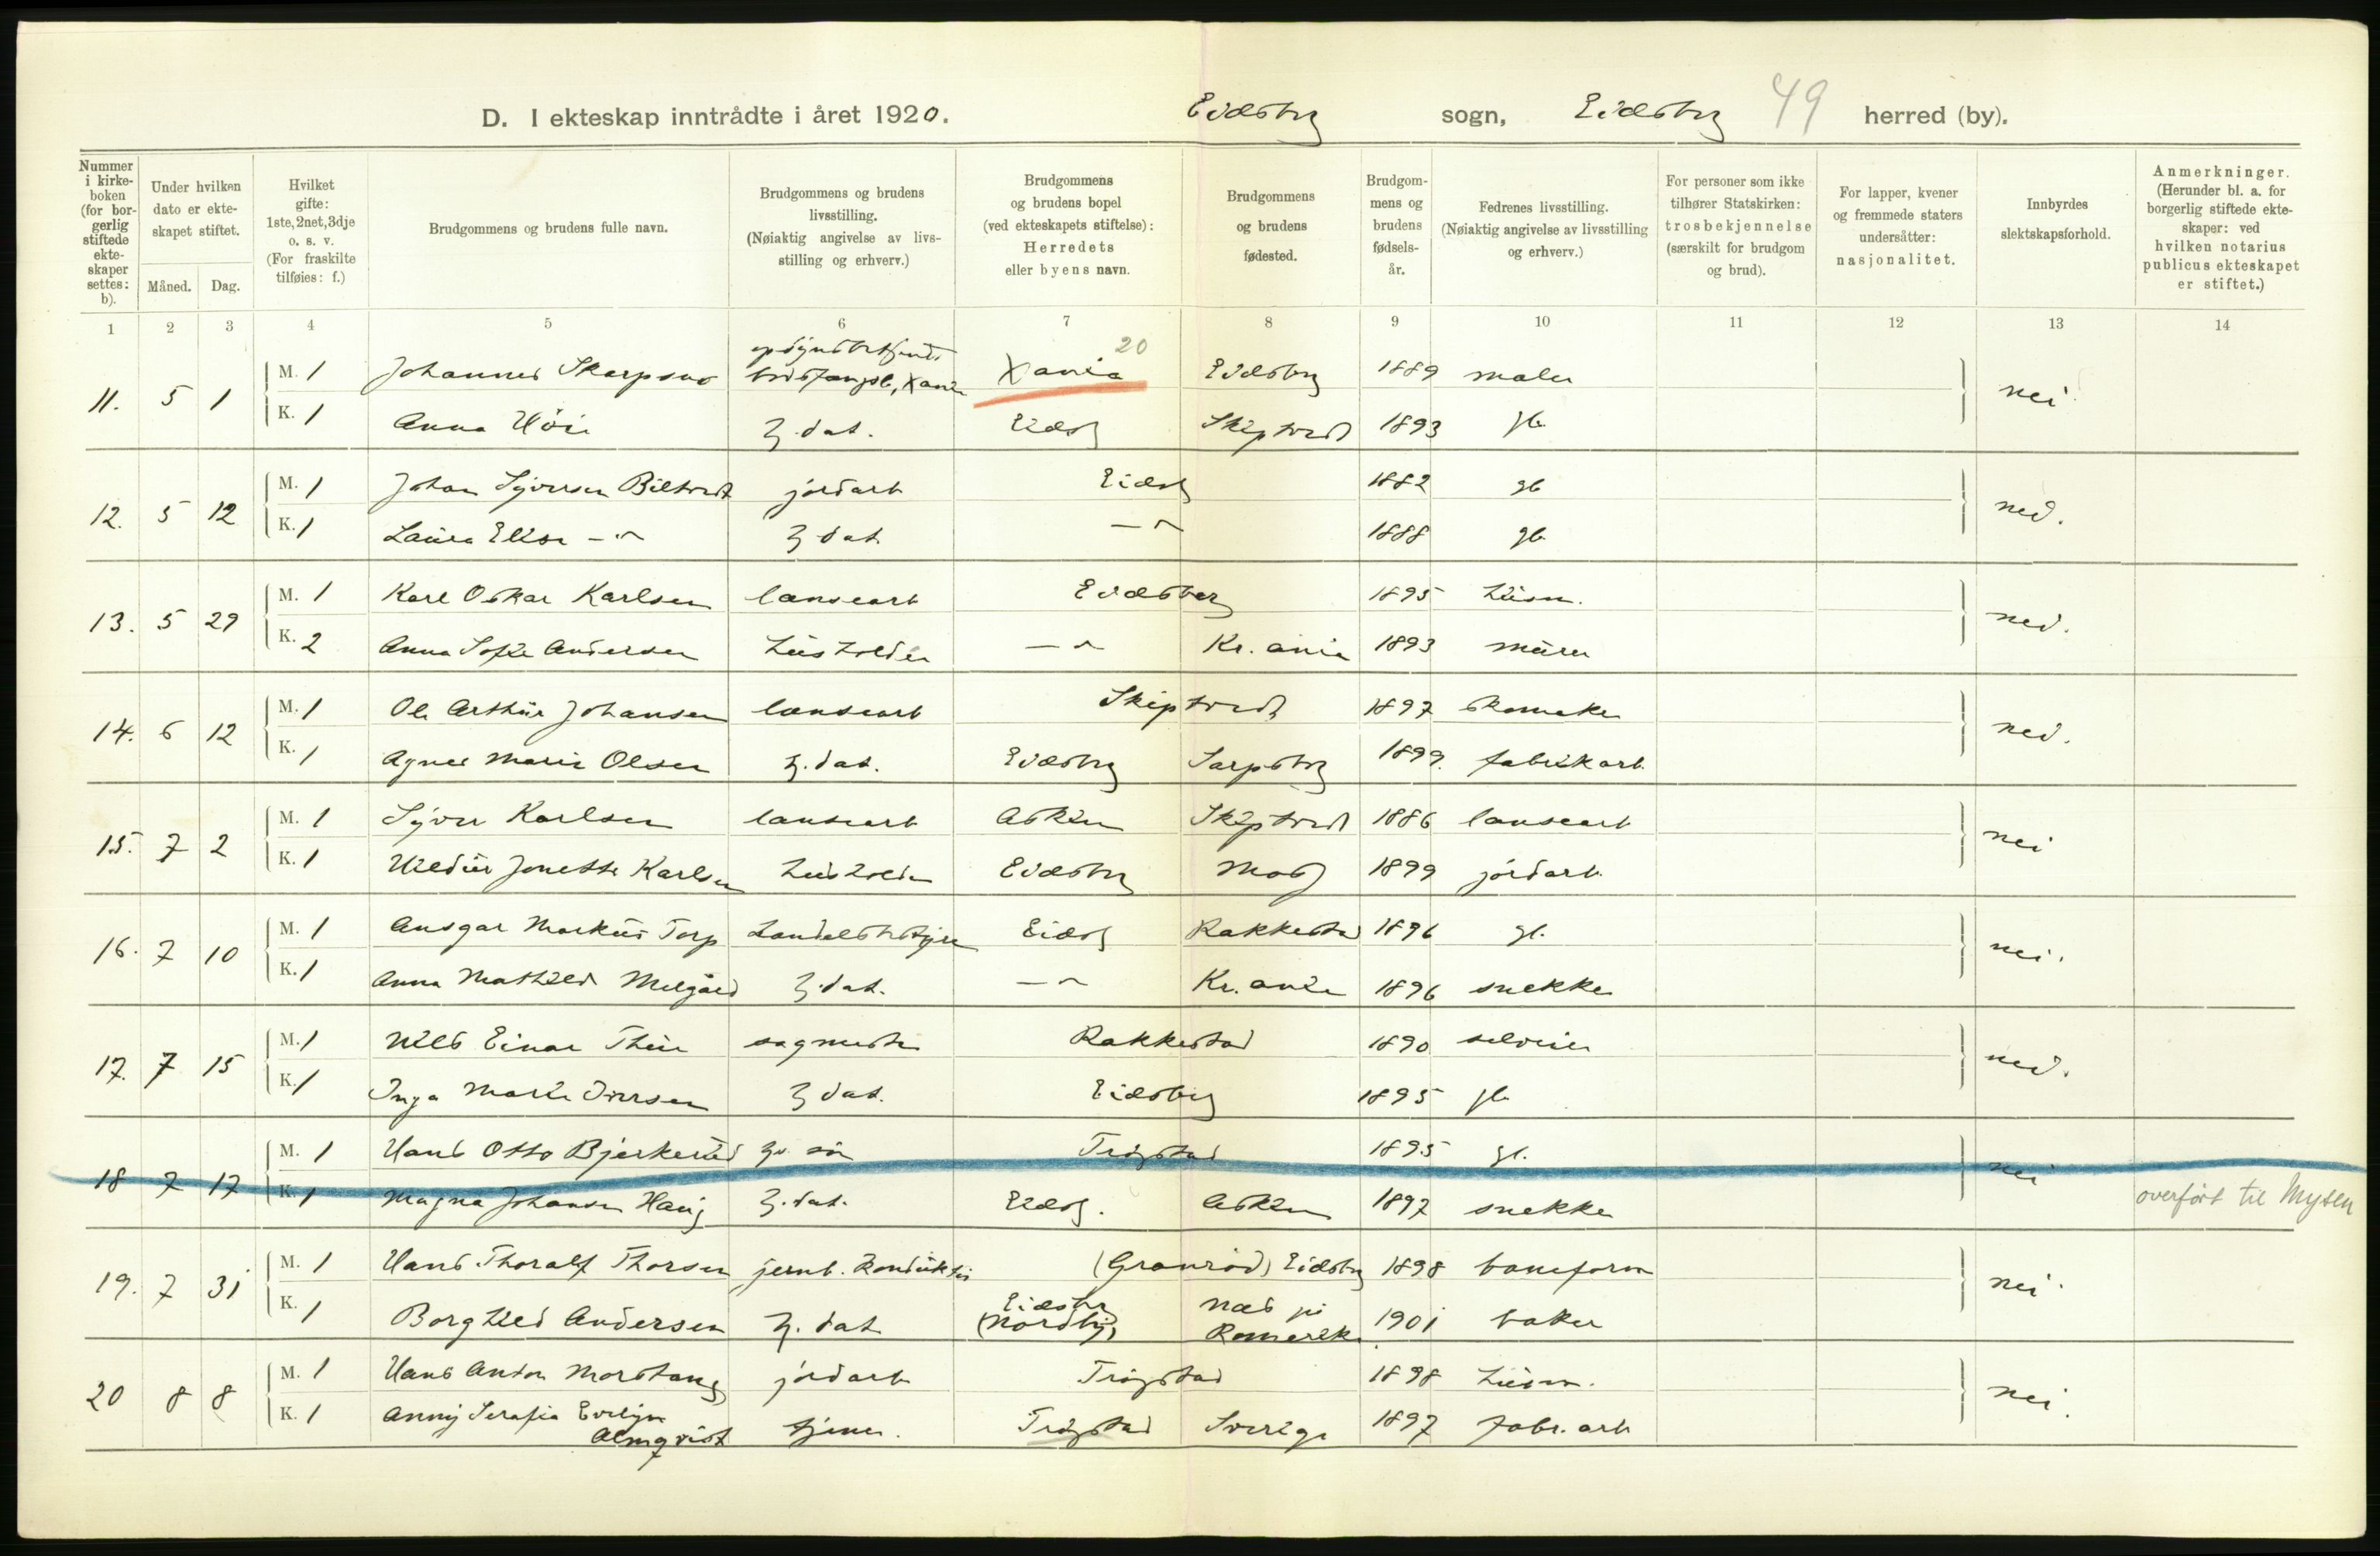 D. I ekteskap inntrådte i året 1920. Eidsberg sogn, Eidsberg 49 herred (by).
Nummer i kirkeboken (for borgerlig stiftede ekteskaper settes: b).
Under hvilken dato er ekteskapet stiftet.
Måned. Dag.
Hvilket gifte: 1ste, 2net, 3dje o. s. v. (For fraskilte tilføies: f.)
Brudgommens og brudens fulle navn.
Brudgommens og brudens livsstilling. (Nøiaktig angivelse av livsstilling og erhverv.)
Brudgommens og brudens bopel (ved ekteskapets stiftelse): Herredets eller byens navn.
Brudgommens og brudens fødested.
Brudgommens og brudens fødselsår.
Fedrenes livsstilling. (Nøiaktig angivelse av livsstilling og erhverv.)
For personer som ikke tilhører Statskirken: trosbekjennelse (særskilt for brudgom og brud).
For lapper, kvener og fremmede staters undersåtter: nasjonalitet.
Innbyrdes slektskapsforhold.
Anmerkninger. (Herunder bl. a. for borgerlig stiftede ekteskaper: ved hvilken notarius publicus ekteskapet er stiftet.)
1 2 3 4 5 6 7 8 9 10 11 12 13 14
11. 5 1 M. 1 Johannes Skarpsno Xania 20 Eidsberg 1889 maler nei
K. 1 Anna Höie h. dat. Eidsb Skiptvedt 1893 gb
12. 5 12 M. 1 Johan Syversen jordarb Eidsb 1882 gb nei.
K. 1 Laura Elise -"- h. dat. -"- 1888 gb
13. 5 29 M. 1 Karl Oskar Karlsen lausearb Eidsberg 1895 husm. nei.
K. 2 Anna Sofie Andersen husholder -"- Kr.ania 1893 murer
14. 6 12 M. 1 Ole Arthur Johansen lausearb Skiptvedt 1897 skomaker nei.
K. 1 Agnes Marie Olsen h. dat. Eidsberg Sarpsborg 1899. fabrikarb.
15. 7 2 M. 1 Syver Karlsen lausearb Askim Skiptvedt 1886 lausearb nei
K. 1 Hildur Jonette Karlsen husholder Eidsberg Moss 1899 jordarb.
16. 7 10 M. 1 Ansgar Markus Torp handelsbestyrer Eidsb Rakkestad 1896 gb. nei.
K. 1 Anna Mathilde Melgård h. dat. -"- Kr.ania 1896 snekker
17. 7 15 M. 1 Nils Einar sagmester Rakkestad 1890 selveier nei.
K. 1 Inga Marie Iversen h dat. Eidsberg 1895 gb
18 7 17 M. 1 Hans Otto Bjerkerud gb. søn Trøgstad 1895 gb. nei
K. 1 Magna Johansen Haug h. dat. Eidsb. Askim 1897 snekker overført til Mysen
19. 7 31 M. 1 Hans Thoralf Thorsen jernb. konduktør (Granrød) Eidsberg 1898 baneform nei.
K. 1 Borghild Andersen h. dat. Eidsberg (Nordby) Næs på Romerike 1901 baker
20 8 8 M. 1 Hans Anton Morstang jordarb Trøgstad 1898 husm. nei.
K. 1 Anny Serafia Evelyn Almqvist tjener. Trøgstad Sverige 1897 fabr.arb